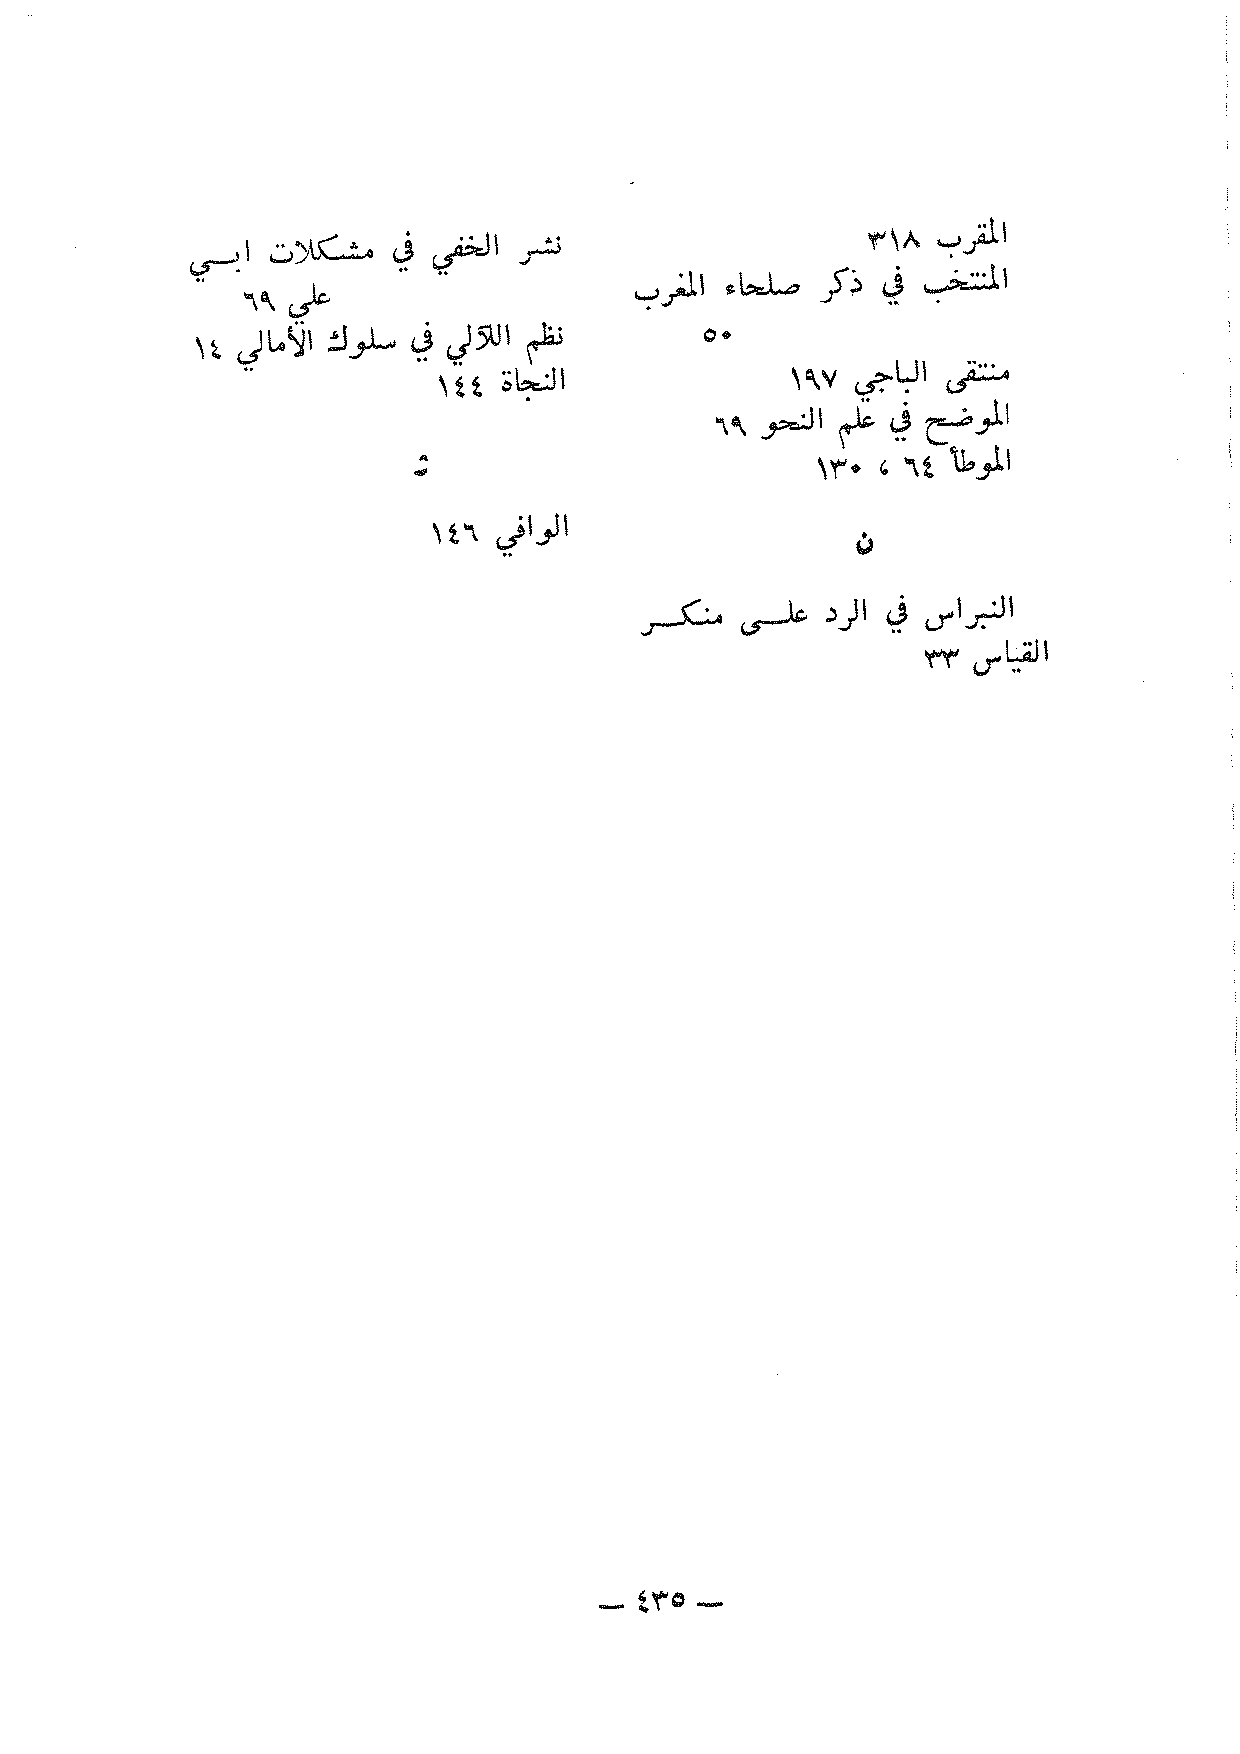 المقرب ٣١٨
المنتخب في ذكر صلحاء المغرب
٥٠
منتقى الباجي ١٩٧
الموضح في علم النحو ٦٩
الموطأ ٦٤ ، ١٣٠
ن
النبراس في الرد علـــى منكـــر
القياس ٣٣
نشر الخفي في مشكلات ابـــي
علي ٦٩
نظم اللآلي في سلوك الأمالي ١٤
النجاة ١٤٤
الوافي ١٤٦
— ٤٣٥ —